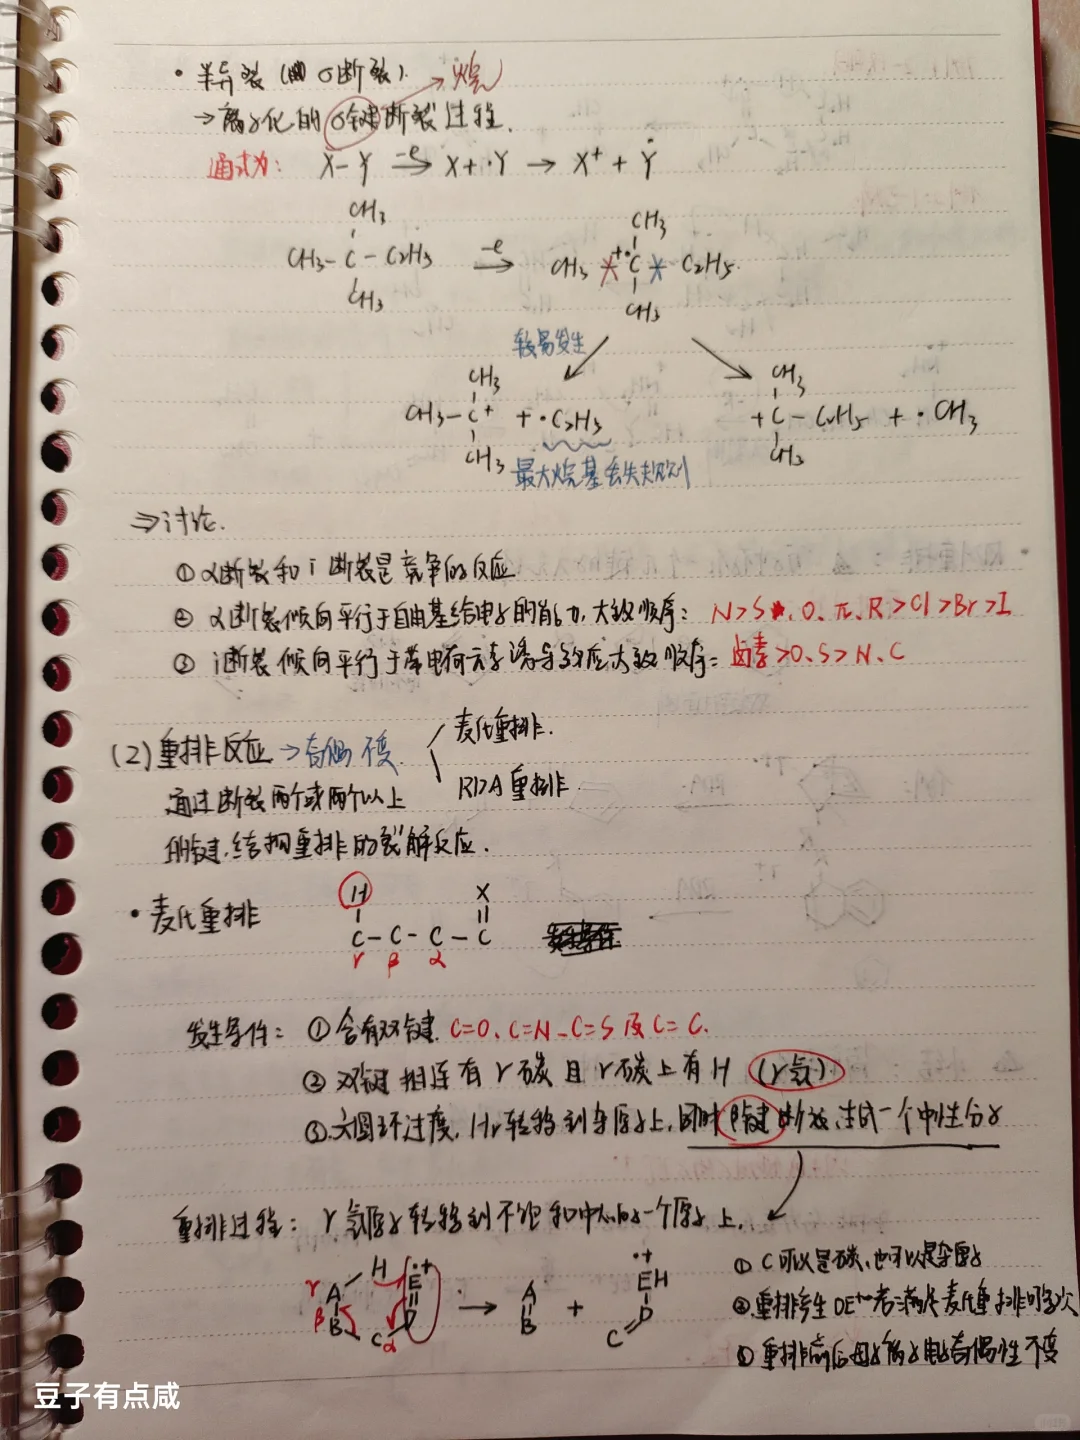 • 半异裂 (σ断裂).
→离子化的σ键断裂过程. 烷
通式为: X-Y -e→ X+·Y → X⁺ + Ẏ
CH₃ CH₃
CH₃-C-C₂H₅ -e→ CH₃ +·C C₂H₅.
CH₃ CH₃
较易发生
CH₃ CH₃
CH₃-C⁺ + ·C₂H₅ +C-C₂H₅ + ·CH₃
CH₃ CH₃
最大烷基丢失规则
⇒讨论.
① α断裂和 i 断裂是竞争的反应
② α断裂倾向平行于自由基给电子的能力,大致顺序: N>S、O、π、R>Cl>Br>I
③ i断裂倾向平行于带电荷元素诱导效应大致顺序: 卤素>O、S>N、C
(2)重排反应→奇偶不变. 麦氏重排.
RDA重排.
通过断裂两个或两个以上
的键,结构重排的裂解反应.
• 麦氏重排
H X
C-C-C-C
γ β α
发生条件: ①含有双键. C=O、C=N、C=S及C=C.
②双键相连有γ碳且γ碳上有H (γ氢).
③六圆环过度,Hγ转移到杂原子上,同时β键断裂,生成一个中性分子
重排过程: γ氢原子转移到不饱和中心的一个原子上.
γ A H E·+ → A + ·+EH
β B C α D B C D
① C可以是碳,也可以是杂原子
②重排产生DE一若满足麦氏重排可多次
③重排前后母子离子电子奇偶性不变
豆子有点咸